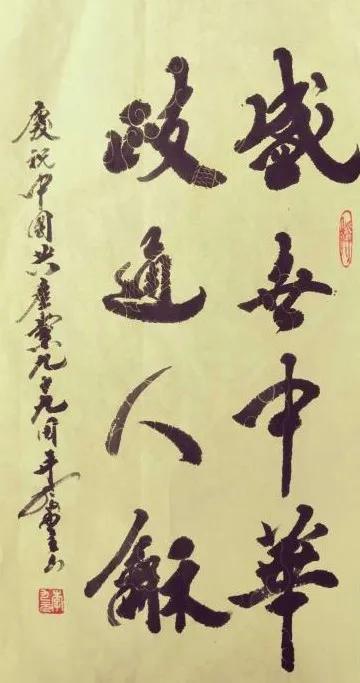 盛世中華
政通人龢
慶祝中国共產黨九十九周年